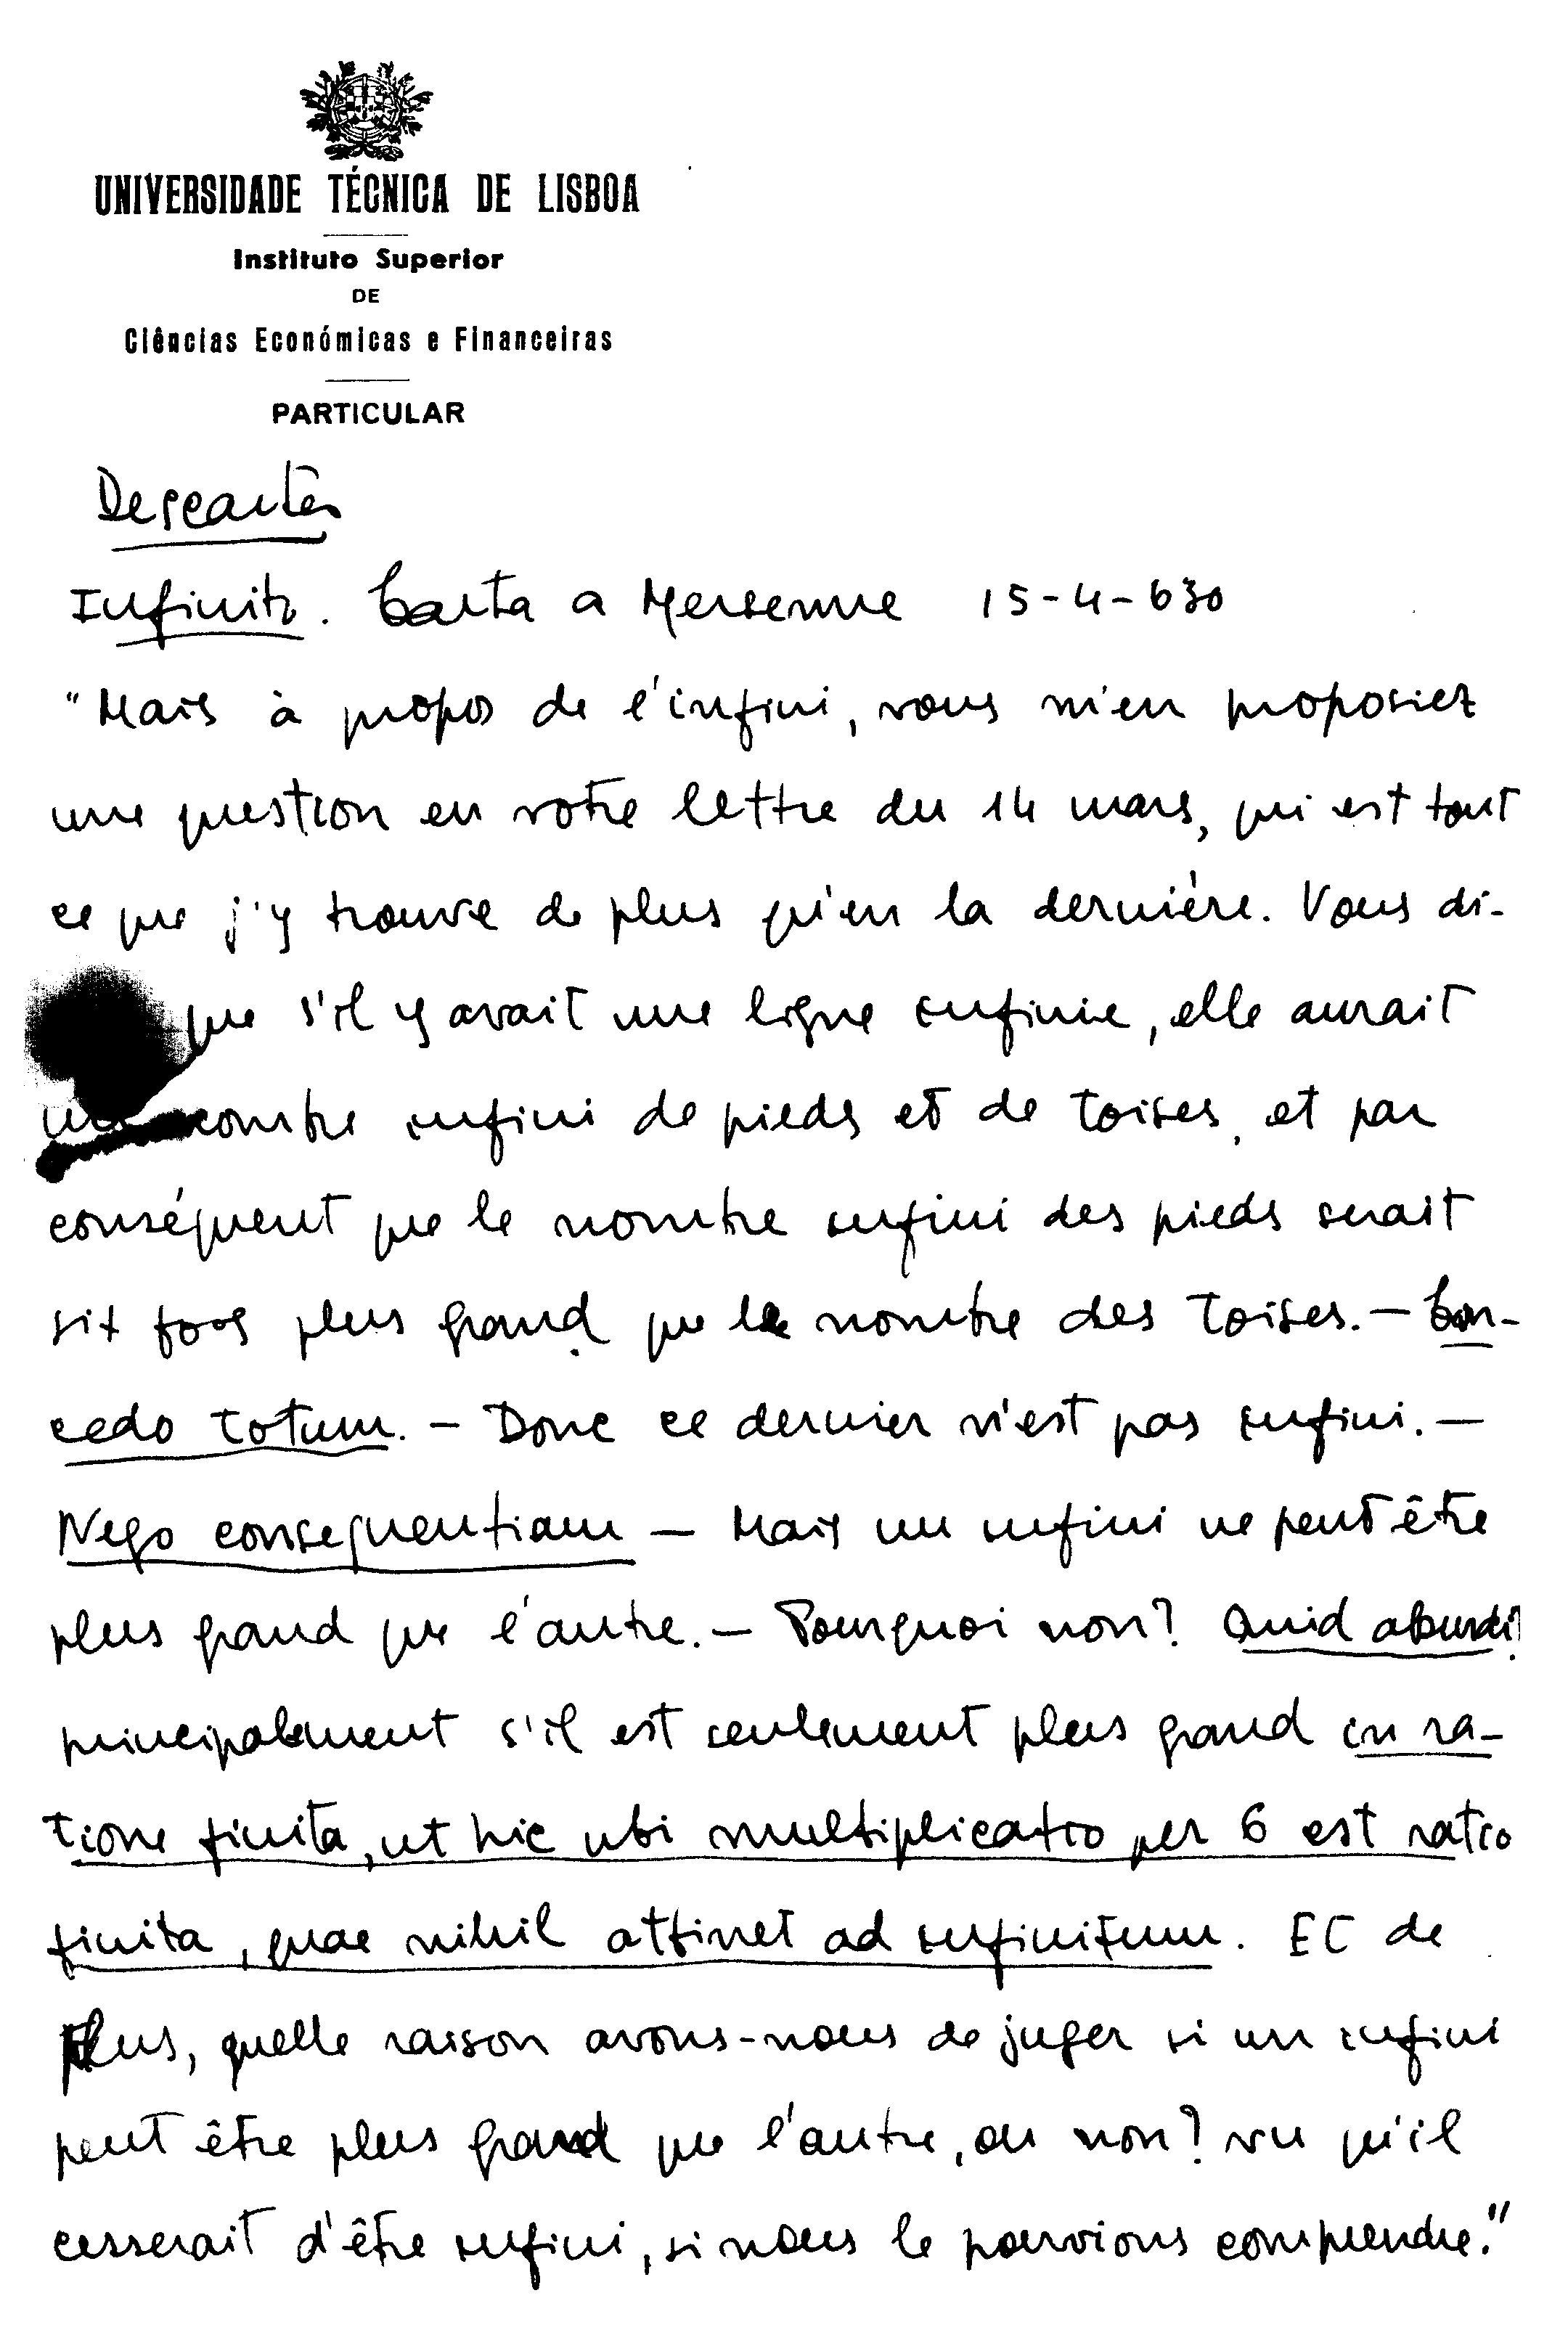 UNIVERSIDADE TÉCNICA DE LISBOA
Instituto Superior
DE
Ciências Económicas e Financeiras
PARTICULAR
Descartes
Infinito. Carta a Mersenne 15-4-630
"Mais à propos de l'infini, vous m'en proposiez
une question en votre lettre du 14 mars, qui est tout
ce que j'y trouve de plus qu'en la dernière. Vous di-
que s'il y avait une ligne infinie, elle aurait
un nombre infini de pieds et de toises, et par
conséquent que le nombre infini des pieds serait
six fois plus grand que le nombre des toises. — Con-
cedo totum. — Donc ce dernier n'est pas infini. —
Nego consequentiam — Mais un infini ne peut être
plus grand que l'autre. — Pourquoi non? Quid absurdi?
principalement s'il est seulement plus grand in ra-
tione finita, ut hic ubi multiplicatio per 6 est ratio
finita, quae nihil attinet ad infinitum. Et de
plus, quelle raison avons-nous de juger si un infini
peut être plus grand que l'autre, ou non? vu qu'il
cesserait d'être infini, si nous le pouvions comprendre."